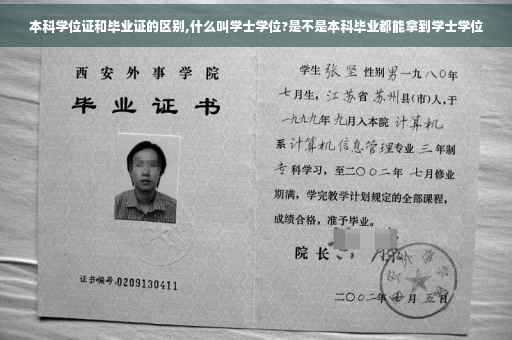 本科学位证和毕业证的区别,什么叫学士学位?是不是本科毕业都能拿到学士学位
西安外事学院
毕业证书
证书编号:0209130411
学生 张坚 性别 男 一九八〇年
七月生，江苏省苏州县(市)人，于
一九九九年九月入本院 计算机
系 计算机信息管理 专业 三 年制
专科学习，至二〇〇二年 七月修业
期满，学完教学计划规定的全部课程，
成绩合格，准予毕业。
院长
二〇〇二年 月 五日